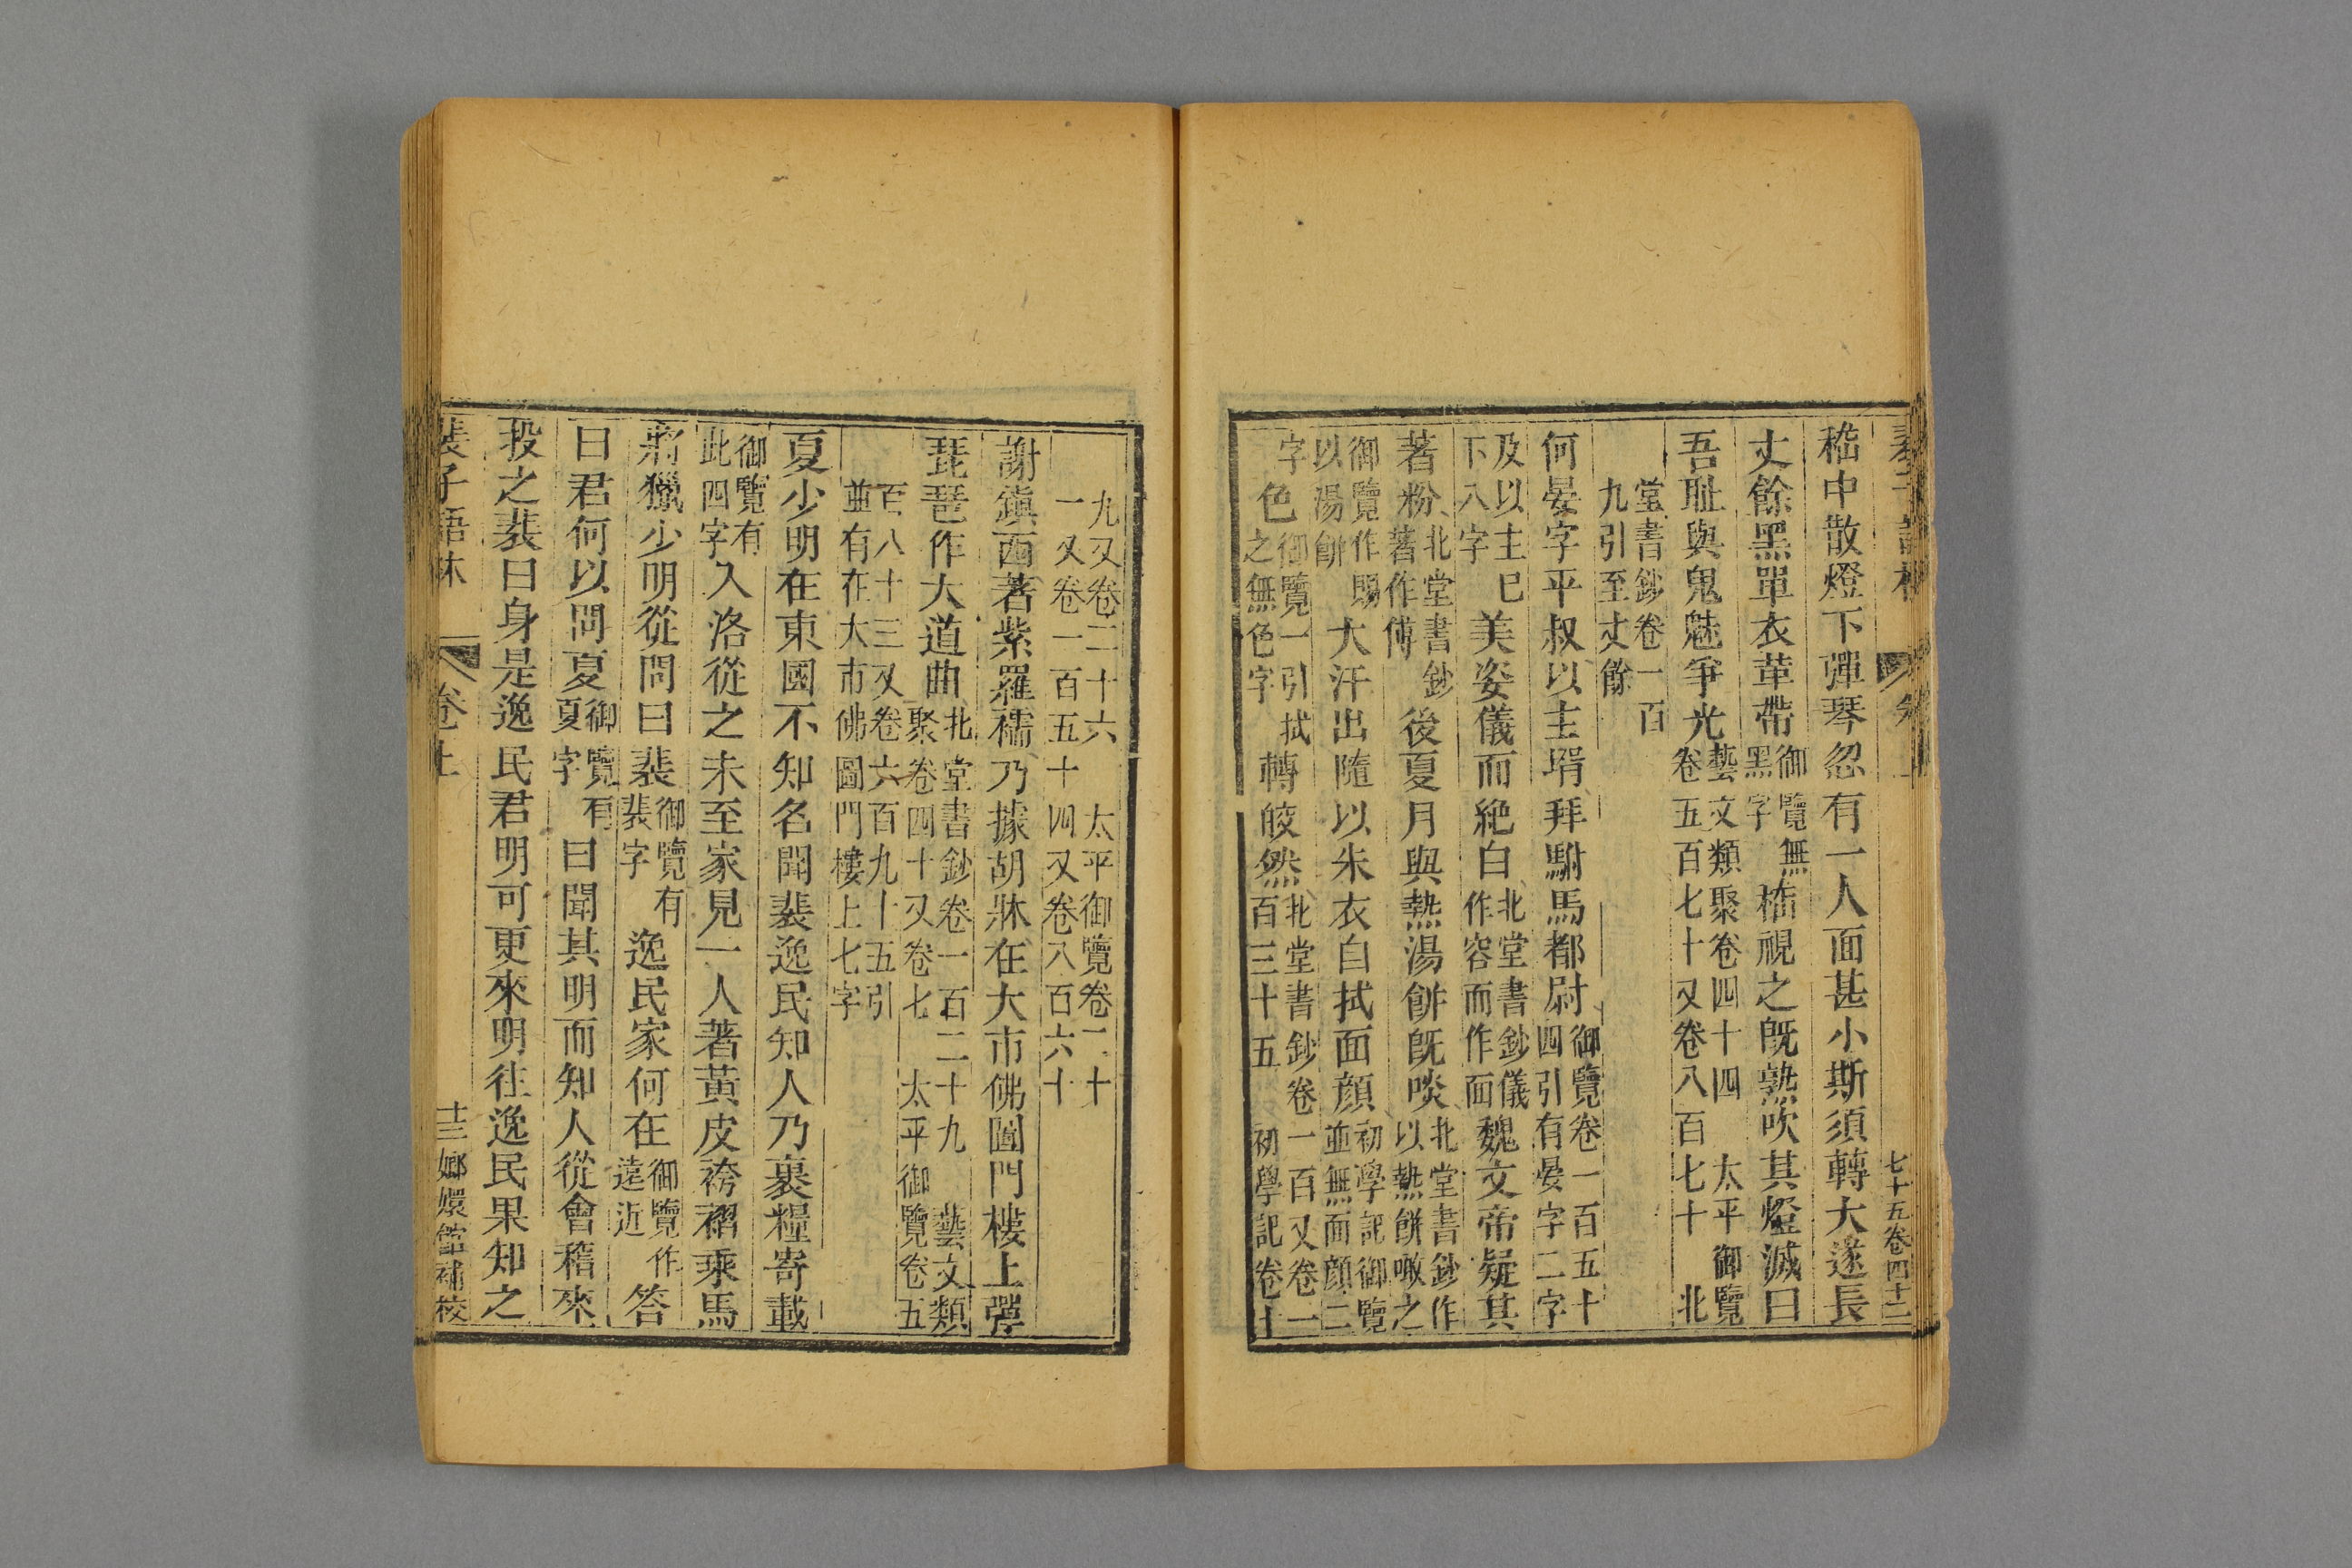 嵇中散燈下彈琴忽有一人面甚小斯須轉大遂長
丈餘黑單衣革帶御覽無黑字嵇視之旣熟吹其燈滅曰
吾耻與鬼魅爭光藝文類聚卷四十四 太平御覽卷五百七十又卷八百七十 北
堂書鈔卷一百九引至丈餘
何晏字平叔以主壻拜駙馬都尉御覽卷一百五十四引有晏字二字
及以主已下八字美姿儀而絶白北堂書鈔儀作容而作面魏文帝疑其
著粉北堂書鈔著作傅後夏月與熱湯餠旣啖北堂書鈔作以熱餠噉之
御覽作賜以湯餠大汗出隨以朱衣自拭面顔初學記御覽並無面顔二
字色御覽一引拭之無色字轉皎然北堂書鈔卷一百又卷一百三十五 初學記卷十
七十五卷四十二
九又卷二十六 太平御覽卷二十一又卷一百五十四又卷八百六十
謝鎭西著紫羅襦乃據胡牀在大市佛圖門樓上彈
琵琶作大道曲北堂書鈔卷一百二十九 藝文類聚卷四十又卷七 太平御覽卷五
百八十三又卷六百九十五引並有在大市佛圖門樓上七字
夏少明在東國不知名聞裴逸民知人乃裹糧寄載
御覽有此四字入洛從之未至家見一人著黃皮袴褶乘馬
將獵少明從問曰裴御覽有裴字逸民家何在御覽作遠近答
曰君何以問夏御覽有夏字曰聞其明而知人從會稽來
投之裴曰身是逸民君明可更來明往逸民果知之
裴子語林 卷上 十三 嫏嬛館補校